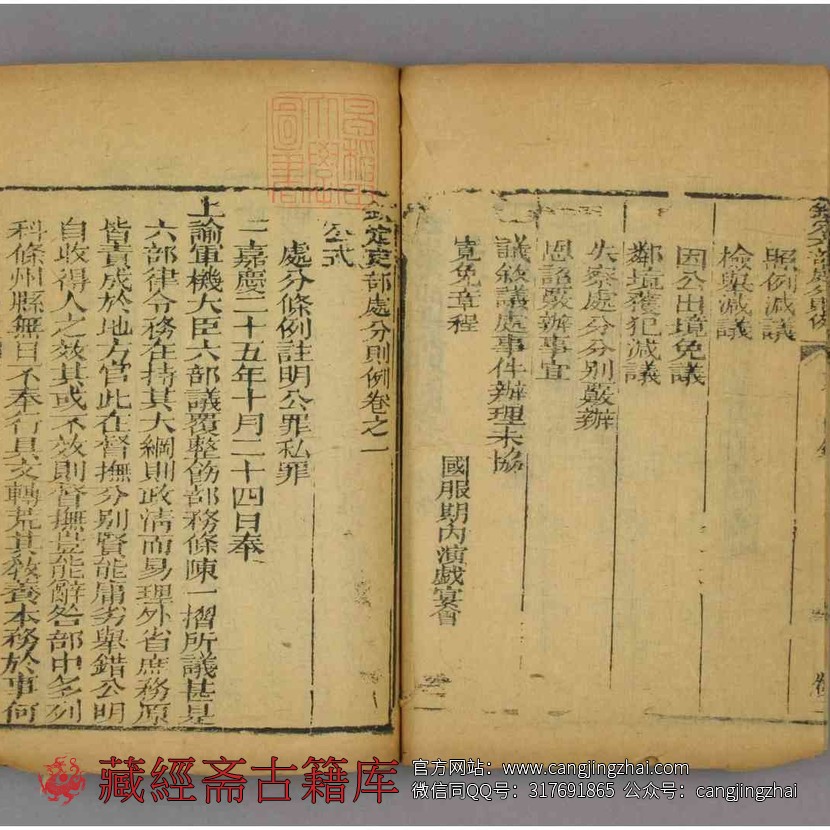 欽定六部處分則例
照例減議
檢舉減議
因公出境免議
鄰境獲犯減議
失察處分分別嚴辦
恩詔嚴辦事宜
議敘議處事件辦理未協
國服期內演戲宴會
寬免章程
欽定吏部處分則例卷之一
公式
處分條例註明公罪私罪
一嘉慶二十五年十月二十四日奉
上諭軍機大臣六部議覆整飭部務條陳一摺所議甚是
六部律令務在持其大綱則政清而易理外省庶務原
皆責成於地方官此在督撫分別賢能庸劣舉錯公明
自收得人之效其或不效則督撫豈能辭咎部中多列
科條州縣無日不奉行具文轉荒其教養本務於事何
藏經斋古籍库
官方网站：www.cangjingzhai.com
微信同QQ号：317691865 公众号：cangjingzhai